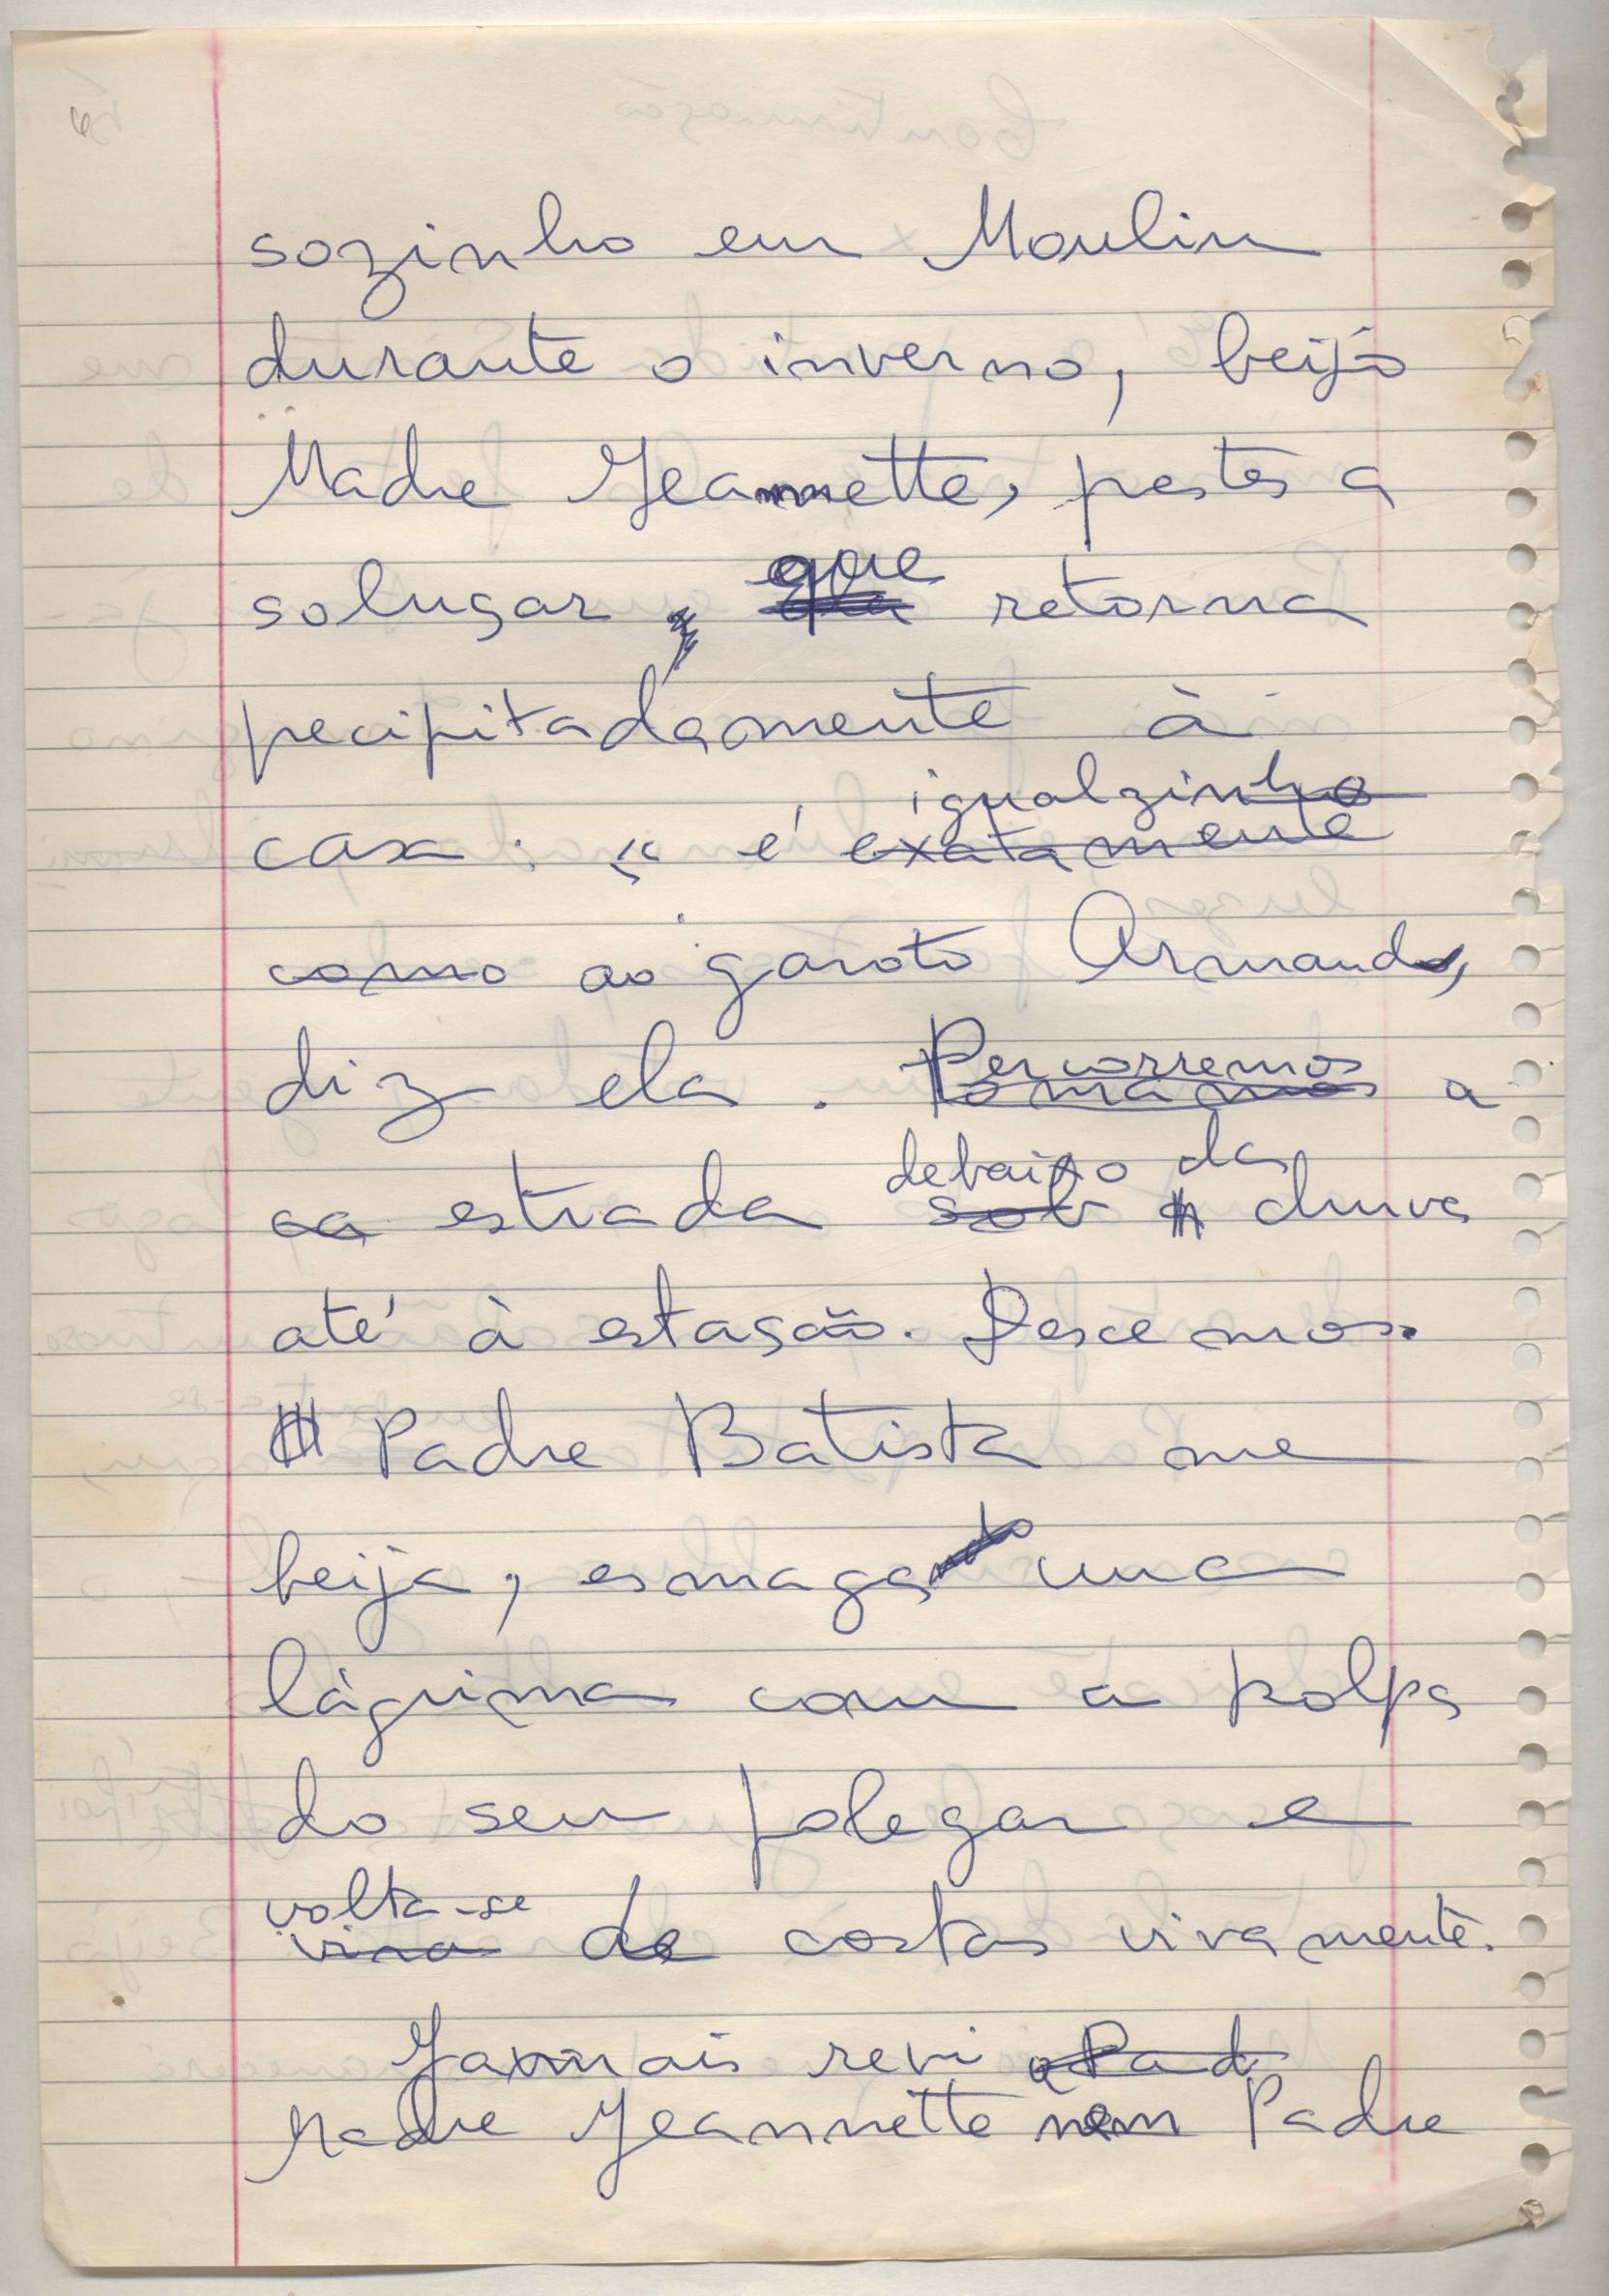 6
sozinho em Moulin
durante o inverno, beijo
Madre Jeannette, prestes a
soluçar, que retorna
precipitadamente à
igualzinho
casa: " é exatamente
como ao garoto Armando,
diz ela. Percorremos
Tomamos a
debaixo da
estrada sob chuva
até à estação. Descemos.
Padre Batista me
beija, esmaga uma
lágrima com a polpa
do seu polegar e
volta-se
vira de costas vivamente.
Jammais revi o Pad
Madre Jeannette nem Padre